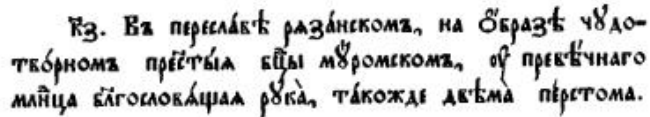 к҃з. Въ переслáвѣ рѧзáнском, на ѻ҆́бразѣ чꙋдо-
твóрномъ прес҃ты́ѧ бц҃ы мꙋ́ромском, ᲂу҆ превѣ́чнаго
млⷣнца бл҃гословѧ́щаѧ рꙋкà, тáкожде двѣмà пéрстома.